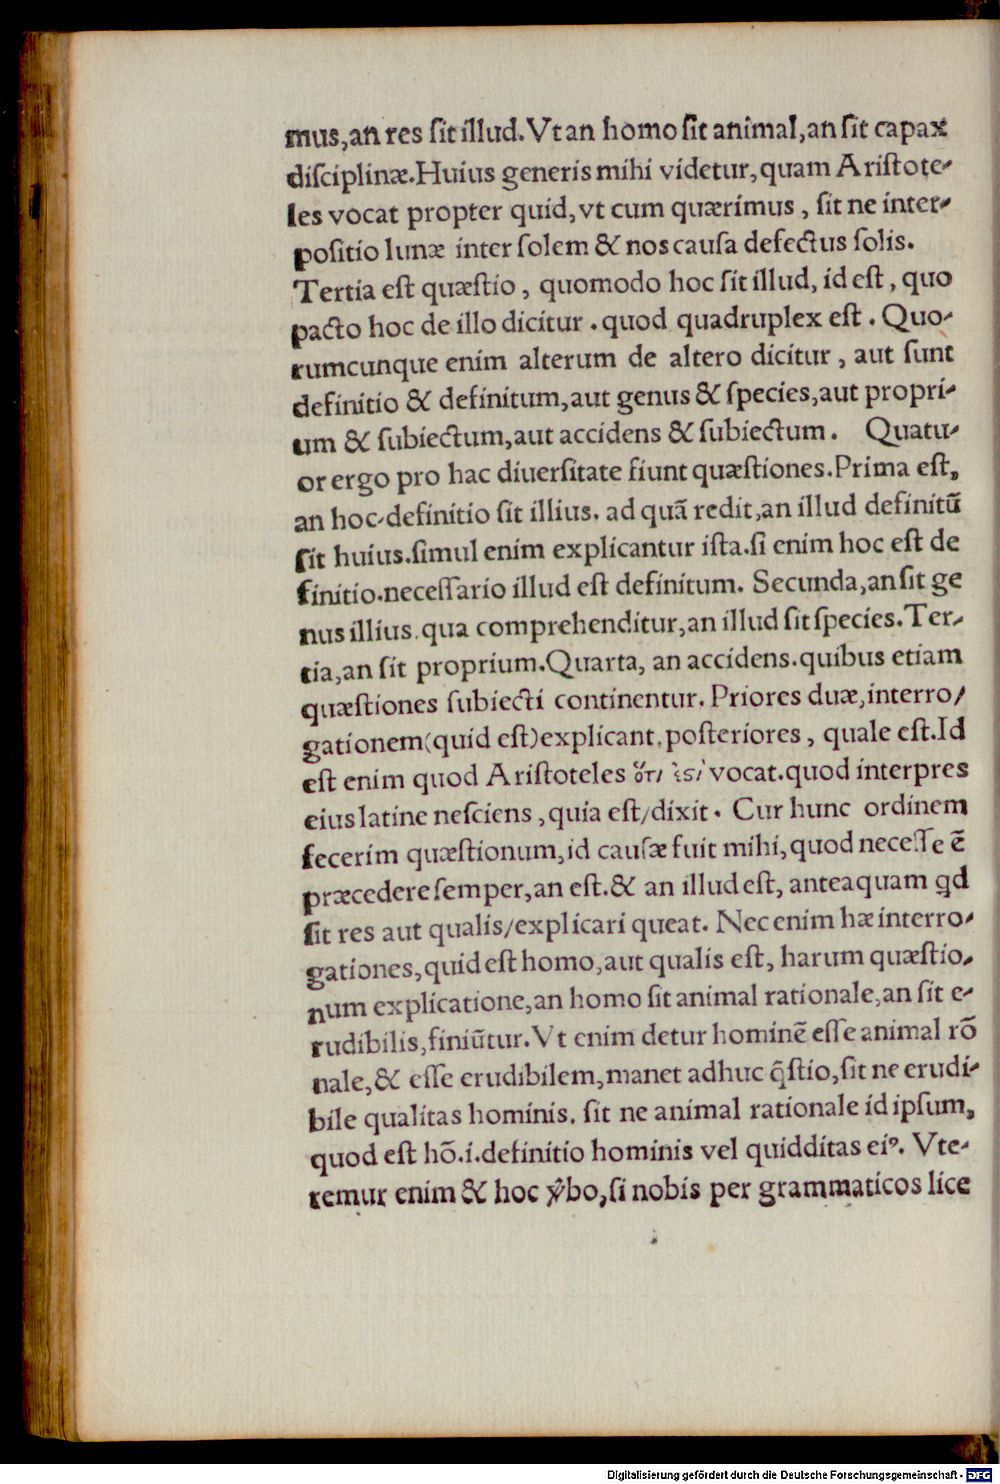 mus,an res ſit illud.Vt an homo ſit animal,an ſit capax
diſciplinæ.Huius generis mihi videtur,quam Ariſtote-
les vocat propter quid,vt cum quærimus , ſit ne inter-
poſitio lunæ inter ſolem & nos cauſa defectus ſolis.
Tertia eſt quæſtio , quomodo hoc ſit illud, id eſt , quo
pacto hoc de illo dicitur . quod quadruplex eſt . Quo-
rumcunque enim alterum de altero dicitur , aut ſunt
definitio & definitum,aut genus & ſpecies,aut propri-
um & ſubiectum,aut accidens & ſubiectum . Quatu-
or ergo pro hac diuerſitate fiunt quæſtiones.Prima eſt,
an hoc definitio ſit illius. ad quã redit,an illud definitũ
ſit huius.ſimul enim explicantur iſta.ſi enim hoc eſt de
finitio.neceſſario illud eſt definitum. Secunda,an ſit ge
nus illius.qua comprehenditur,an illud ſit ſpecies.Ter-
tia,an ſit proprium.Quarta, an accidens.quibus etiam
quæſtiones ſubiecti continentur. Priores duæ,interro/
gationem(quid eſt)explicant.poſteriores , quale eſt.Id
eſt enim quod Ariſtoteles ὅτι ἐϛὶ vocat.quod interpres
eius latine neſciens , quia eſt/dixit . Cur hunc ordinem
fecerim quæſtionum,id cauſæ fuit mihi,quod neceſſe ē
præcedere ſemper,an eſt.& an illud eſt, anteaquam qd
ſit res aut qualis/explicari queat. Nec enim hæ interro-
gationes,quid eſt homo,aut qualis eſt, harum quæſtio-
num explicatione,an homo ſit animal rationale,an ſit e-
rudibilis,finiũtur.Vt enim detur hominē eſſe animal rō
nale,& eſſe erudibilem,manet adhuc q̄ſtio,ſit ne erudi-
bile qualitas hominis. ſit ne animal rationale id ipſum,
quod eſt hō.i.definitio hominis vel quidditas eiꝰ. Vte-
remur enim & hoc v̾bo,ſi nobis per grammaticos lice
Digitalisierung gefördert durch die Deutsche Forschungsgemeinschaft - DFG